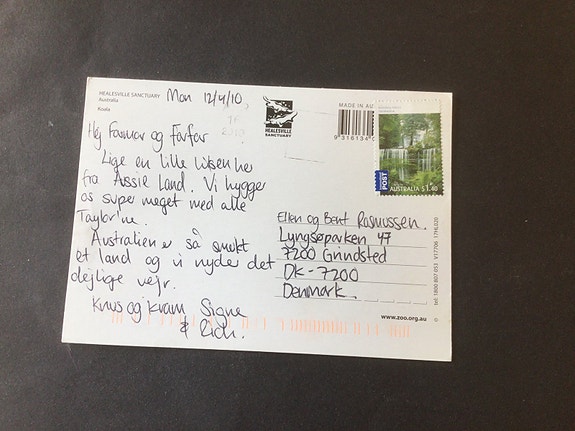 HEALESVILLE SANCTUARY
Australia
Koala
Mon 12/4/10
HEALESVILLE
SANCTUARY
MADE IN AU
9 316134 0
INTERNATIONAL
POST
AUSTRALIA $1.40
Hej Farmor og Farfar
Lige en lille hilsen her
fra Assie Land. Vi hygger
os super meget med alle
Taylor'ne.
Australien er så smukt
et land og vi nyder det
dejlige vejr.
Knus og kram Signe
&
Ellen og Bent Rasmussen.
Lyngsøparken 47
7200 Grindsted
DK-7200
Denmark.
www.zoo.org.au
tel: 1800 807 053 V17706 17HL020